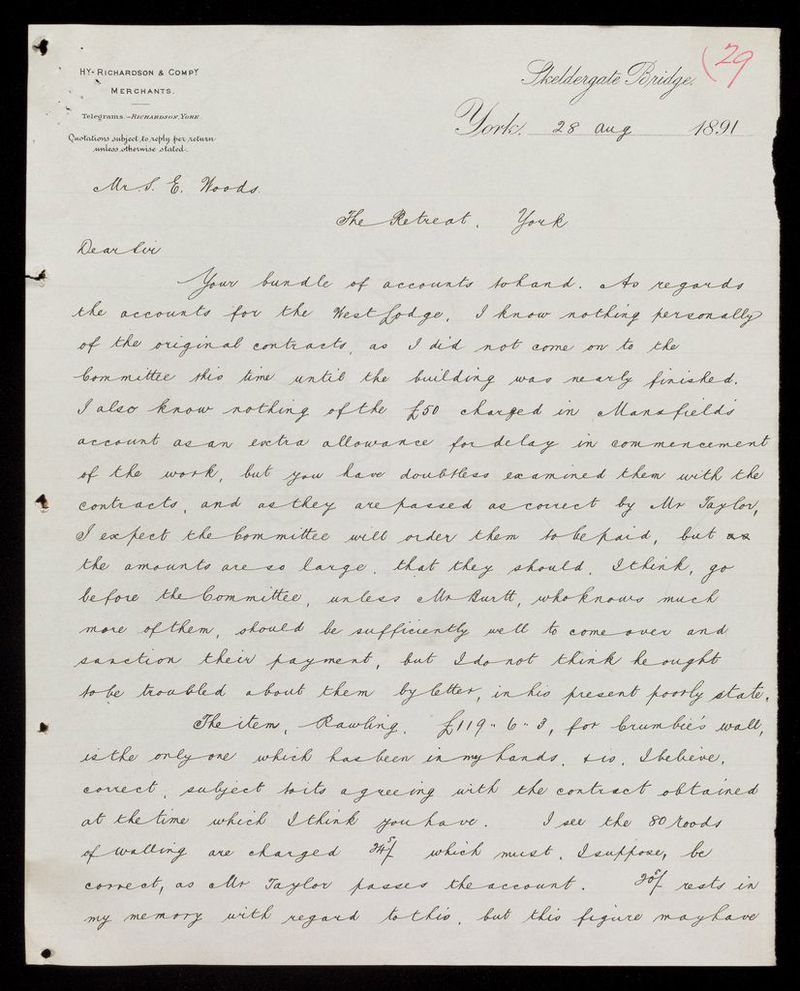 Hy. Richardson & Compy
Merchants.
Telegrams.-Richardson York
Quotations subject to reply per return
unless otherwise stated.
Skeldergate Bridge,
(29
York, 28 Aug 1891
Mr S. E. Woods.
The Retreat. York
Dear Sir
Your bundle of accounts to hand. As regards
the accounts for the West Lodge, I know nothing personally
of the original contracts, as I did not come on to the
Committee this time until the building was nearly finished.
I also know nothing of the £50 charged in Mansfield's
account as an extra allowance for delay in commencement
of the work, but you have doubtless examined them with the
contracts, and as they are passed as correct by Mr Taylor,
I expect the Committee will order them to be paid, but as
the amounts are so large, that they should, I think, go
before the Committee, unless Mr Burtt, who knows much
more of them, should be sufficiently well to come over and
sanction their payment, but I do not think he ought
to be troubled about them by letter, in his present poorly state.
The item, Rawling. £119 " 6 " 3, for Crumbie's wall,
is the only one which has been in my hands, & is, I believe,
correct, subject to its agreeing with the contract obtained
at the time which I think you have. I see the 80 roods
of walling are charged which must, I suppose, be
correct, as Mr Taylor passes the account. rests in
my memory with regard to this, but this figure may have